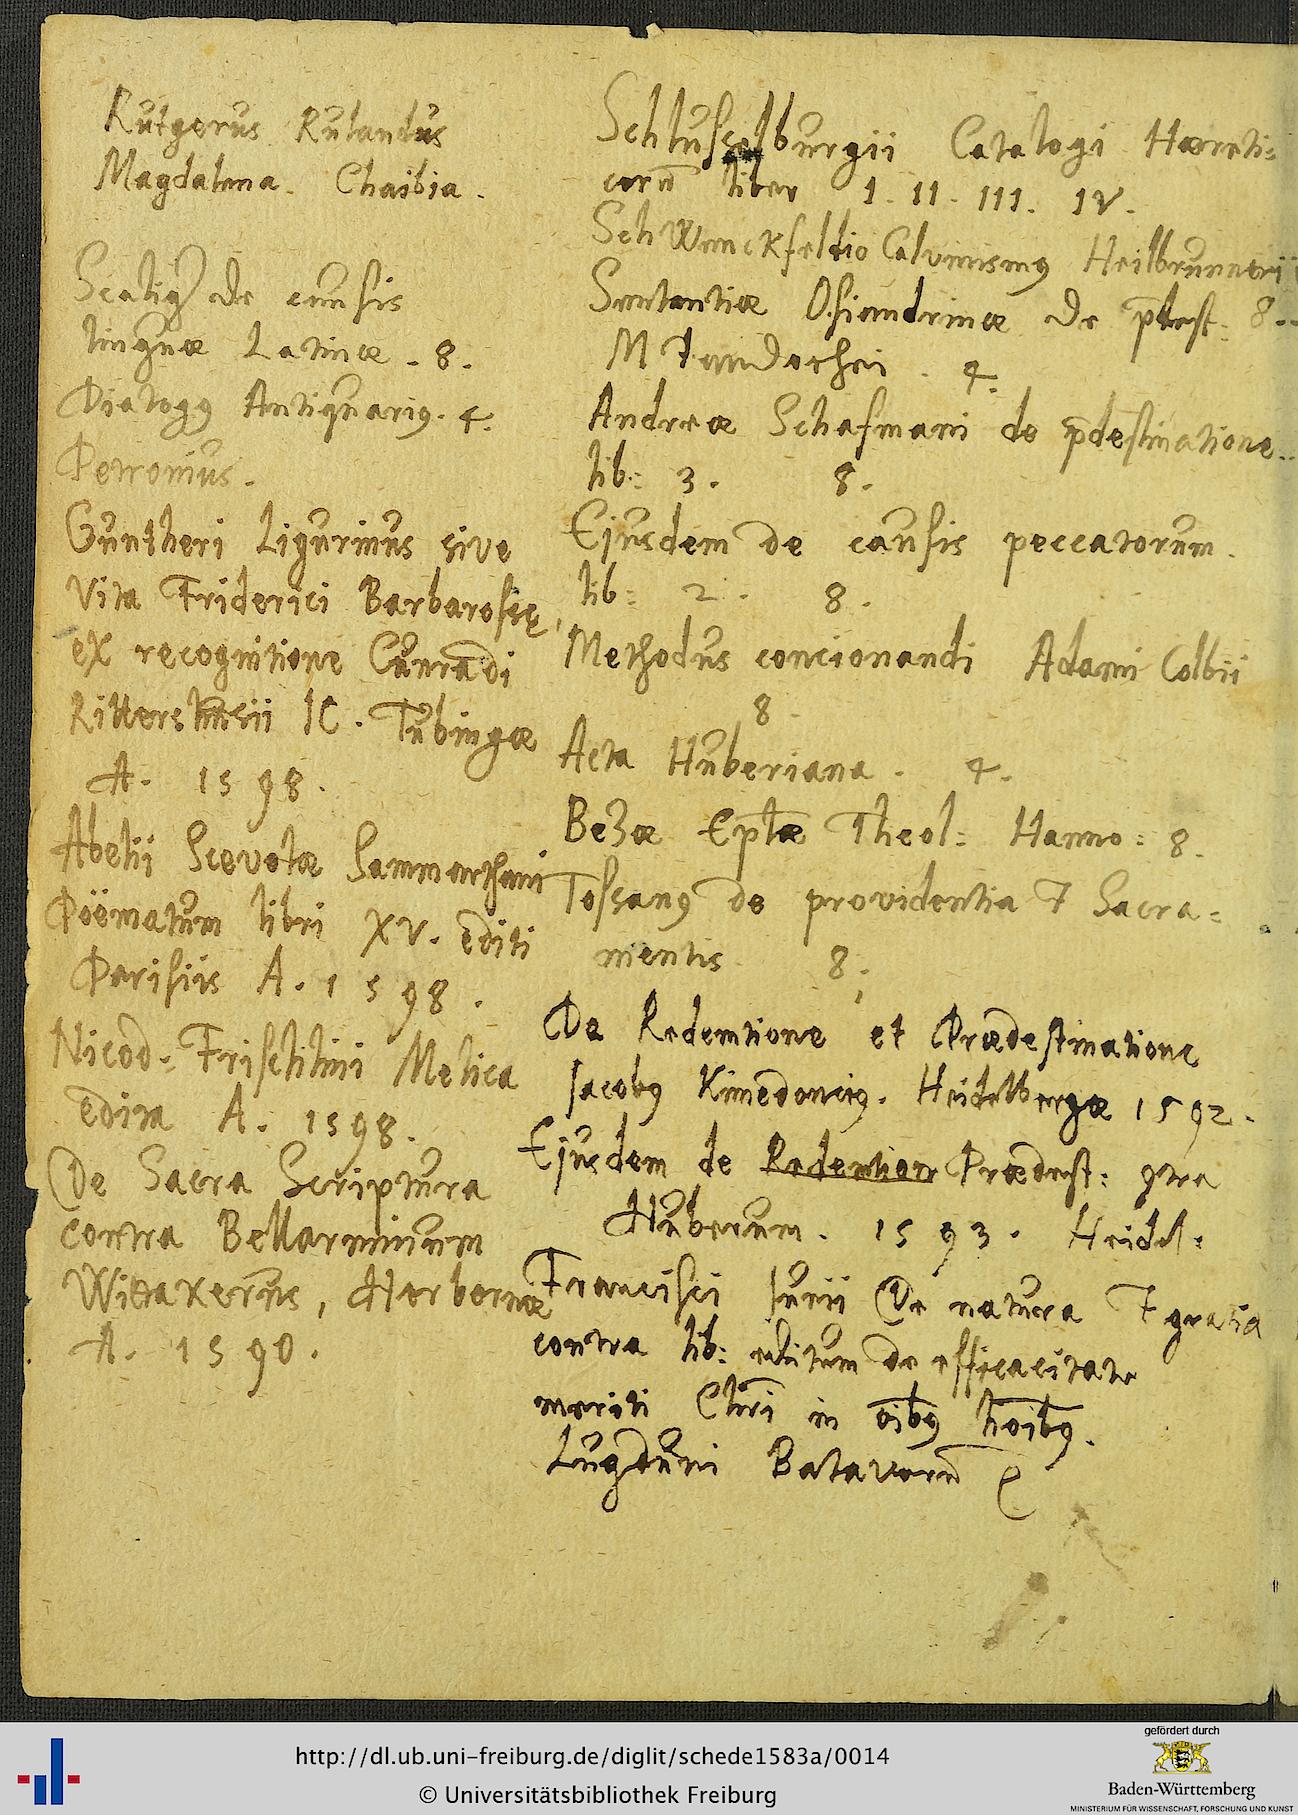 Rutgerus Rulandus
Magdalena. Chaibia.
Scalig de causis
linguæ Latinæ. 8.
Dialogꝯ Antiquariꝯ. 4.
Petronius.
Guntheri Ligurinus sive
Vita Friderici Barbarossę,
ex recognitione Cunradi
Rittershusii IC. Tubingæ
A. 1598.
Abelii Scevolæ Sammarthani
Poëmatum libri XV. editi
Parisiis A. 1598.
Nicod: Frischlini Melica
edita A. 1598.
De Sacra Scriptura
contra Bellarminum
Witakerus, Herbornæ
A. 1590.
Schlusselburgii Catalogi Hæreti=
corū liber I. II. III. IV.
Schwenckfeldio Calvinismꝯ Heilbrunneri
Sententiæ Osiandrinæ de p̄dest: 8.
M 4.
Andreæ Schafmani de p̄destinatione.
lib: 3. 8.
Ejusdem de causis peccatorum.
lib: 2. 8.
Methodus concionandi Adami Colbii
8
Acta Huberiana. 4.
Bezæ Eptæ Theol: Hanno: 8.
Tossanꝯ de providentia & Sacra=
mentis. 8.
De Redemtione et Prædestinatione
Jacobꝯ Kimedonciꝯ. Heidelbergæ 1592.
Ejusdem de Redention Prædest: ꝯtra
Huberum. 1593. Heidel:
Francisci Junii De natura & gratia
contra lib: editum de efficacitate
meriti Chr̄i in oībꝯ hoībꝯ.
Lugduni Batavorū
http://dl.ub.uni-freiburg.de/diglit/schede1583a/0014
© Universitätsbibliothek Freiburg
gefördert durch
Baden-Württemberg
MINISTERIUM FÜR WISSENSCHAFT, FORSCHUNG UND KUNST